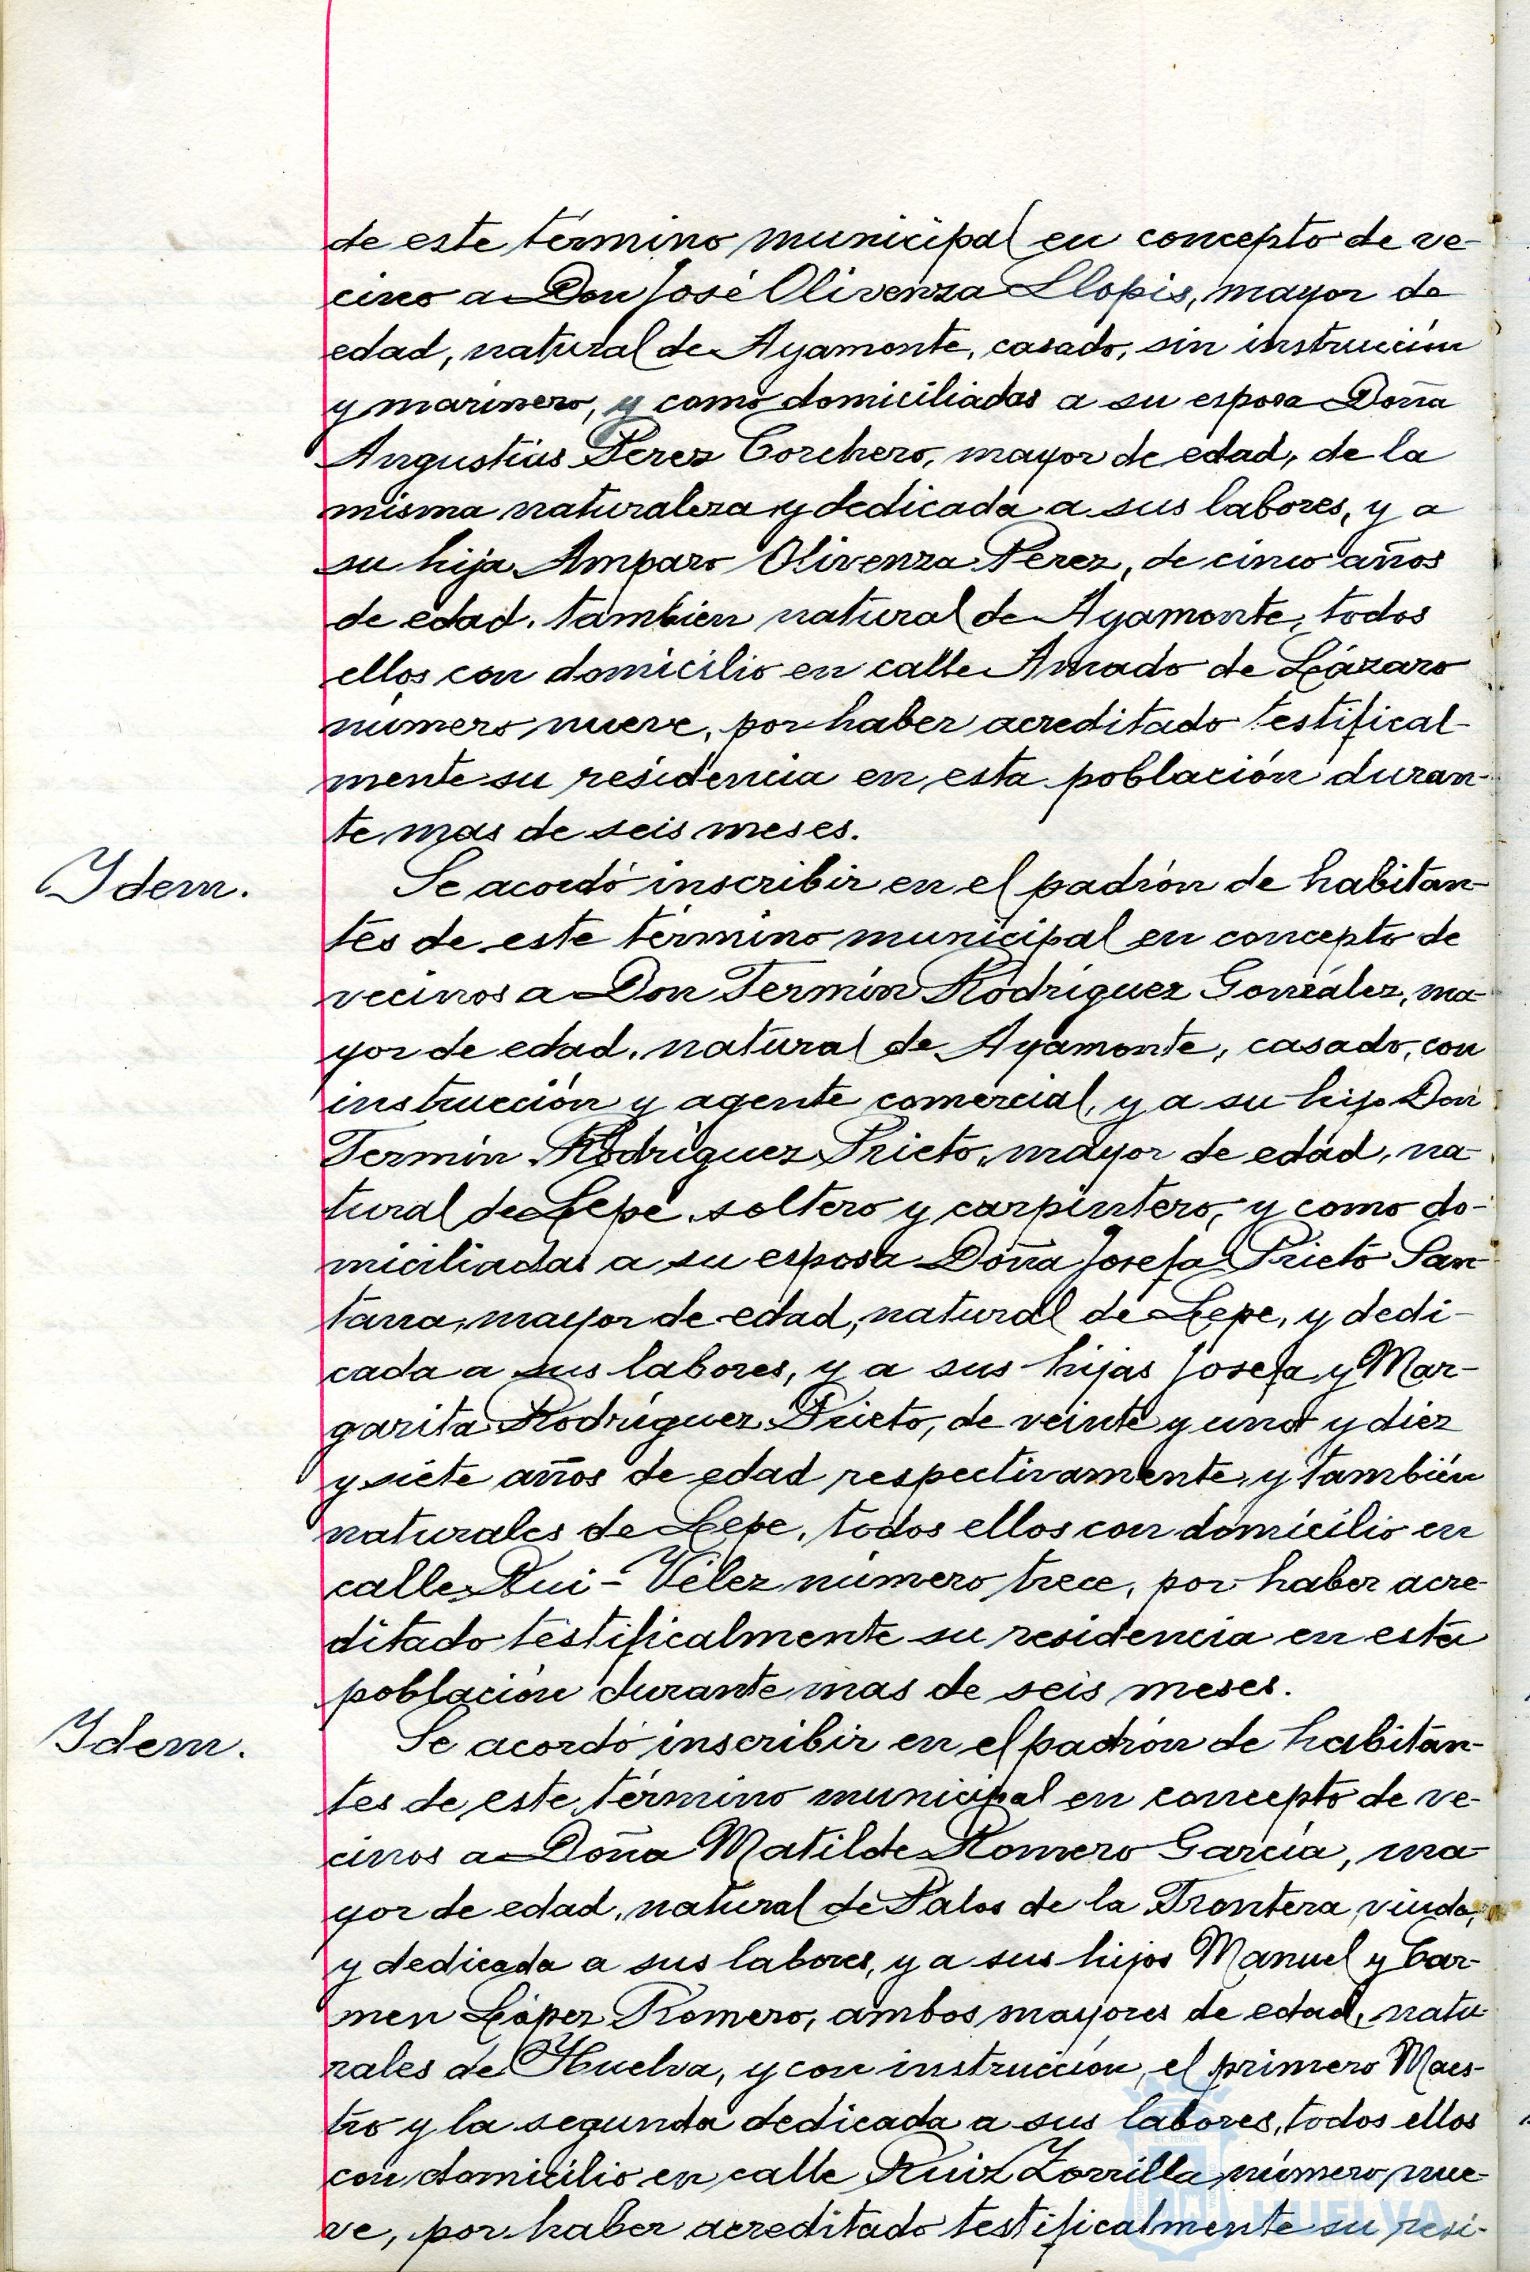 de este término municipal en concepto de ve-
cino a Don José Olivenza Llopis, mayor de
edad, natural de Ayamonte, casado, sin instrucción
y marinero, y como domiciliados a su esposa Doña
Angustias Perez Corchero, mayor de edad, de la
misma naturaleza y dedicada a sus labores, y a
su hija Amparo Olivenza Perez, de cinco años
de edad, tambien natural de Ayamonte, todos
ellos con domicilio en calle Amado de Lázaro
número nueve, por haber acreditado testifical-
mente su residencia en esta población duran-
te mas de seis meses.
Idem.
Se acordó inscribir en el padrón de habitan-
tes de este término municipal en concepto de
vecinos a Don Fermin Rodríguez González, ma-
yor de edad, natural de Ayamonte, casado, con
instrucción y agente comercial, y a su hijo Don
Fermin Rodríguez Prieto, mayor de edad, na-
tural de Lepe, soltero y carpintero, y como do-
miciliadas a su esposa Doña Josefa Prieto San-
tana, mayor de edad, natural de Lepe, y dedi-
cada a sus labores, y a sus hijas Josefa y Mar-
garita Rodríguez Prieto, de veinte y una y diez
y siete años de edad respectivamente, y también
naturales de Lepe, todos ellos con domicilio en
calle Rui-Vélez número trece, por haber acre-
ditado testificalmente su residencia en esta
población durante mas de seis meses.
Idem.
Se acordó inscribir en el padrón de habitan-
tes de este término municipal en concepto de ve-
cinos a Doña Matilde Romero García, ma-
yor de edad, natural de Palos de la Frontera, viuda,
y dedicada a sus labores, y a sus hijos Manuel y Car-
men López Romero, ambos mayores de edad, natu-
rales de Huelva, y con instrucción, el primero Maes-
tro y la segunda dedicada a sus labores, todos ellos
con domicilio en calle Ruiz Zorrilla número nue-
ve, por haber acreditado testificalmente su resi-
HUELVA